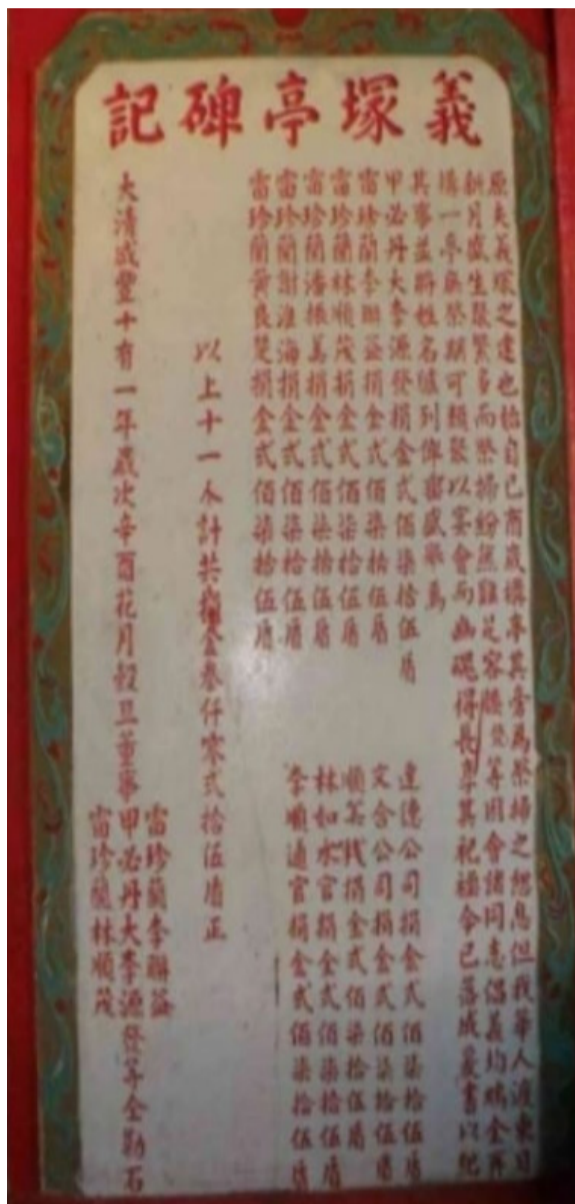 義塚亭碑記
原夫義塚之建也始自己酉歲構亭其旁為祭掃之憩息但我華人渡東日
新月盛生聚繁多而祭掃紛然難足容膝發等因會諸同志倡義均端金再
構一亭無祭期可類聚以宴會而幽魂得長享其祀禋今已落成爰書以紀
其事並將姓名臚列俾審盛舉焉
甲必丹大李源發捐金弍佰柒拾伍盾
雷珍蘭李聯益捐金弍佰柒拾伍盾
雷珍蘭林順茂捐金弍佰柒拾伍盾
雷珍蘭潘振義捐金弍佰柒拾伍盾
雷珍蘭謝淮海捐金弍佰柒拾伍盾
雷珍蘭黃良楚捐金弍佰柒拾伍盾
達德公司捐金弍佰柒拾伍盾
文合公司捐金弍佰柒拾伍盾
順美棧捐金弍佰柒拾伍盾
林如水官捐金弍佰柒拾伍盾
李順通官捐金弍佰柒拾伍盾
以上十一人計共捐金叁仟零弍拾伍盾正
大清咸豐十有一年歲次辛酉花月穀旦董事
雷珍蘭李聯益
甲必丹大李源發等仝勒石
雷珍蘭林順茂